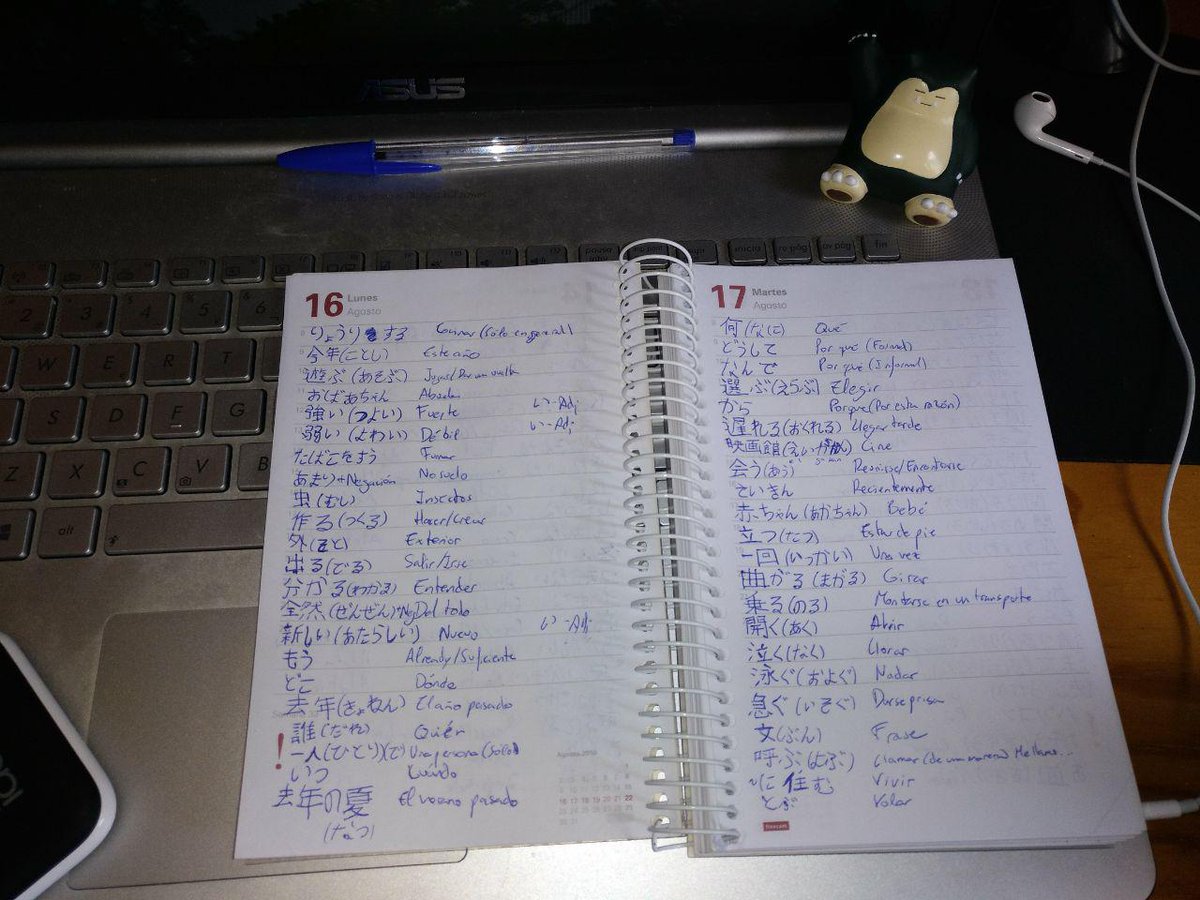 ASUS
16 Lunes
Agosto
りょうりをする Cocinar (Solo en general)
今年(ことし) Este año
遊ぶ(あそぶ) Jugar/Dar una vuelta
おばあちゃん Abuela
強い(つよい) Fuerte い-Adj
弱い(よわい) Débil い-Adj
たばこをすう Fumar
あまり+Negación No suelo
虫(むし) Insectos
作る(つくる) Hacer/Crear
外(そと) Exterior
出る(でる) Salir/Irse
分かる(わかる) Entender
全然(ぜんぜん) Del todo
新しい(あたらしい) Nuevo い-Adj
もう Already/Suficiente
どこ Dónde
去年(きょねん) El año pasado
! 誰(だれ) Quién
一人(ひとり)(で) Una persona (Solo)
いつ Cuándo
去年の夏 El verano pasado
(なつ)
Agosto 2010
17 Martes
Agosto
何(なに) Qué
どうして Por qué (Formal)
なんで Por qué (Informal)
選ぶ(えらぶ) Elegir
から Porque (Por esta razón)
遅れる(おくれる) Llegar tarde
映画館(えいがかん) Cine
会う(あう) Reunirse/Encontrarse
さいきん Recientemente
赤ちゃん(あかちゃん) Bebé
立つ(たつ) Estar de pie
一回(いっかい) Una vez
曲がる(まがる) Girar
乗る(のる) Montarse en un transporte
開く(あく) Abrir
泣く(なく) Llorar
泳ぐ(およぐ) Nadar
急ぐ(いそぐ) Darse prisa
文(ぶん) Frase
呼ぶ(よぶ) Llamar (de una manera) Me llamo...
~に住む Vivir
とぶ Volar
finocam
pausa
inicio
re pág
av pág
fin
W
E
R
T
S
D
F
G
Z
X
C
V
B
alt